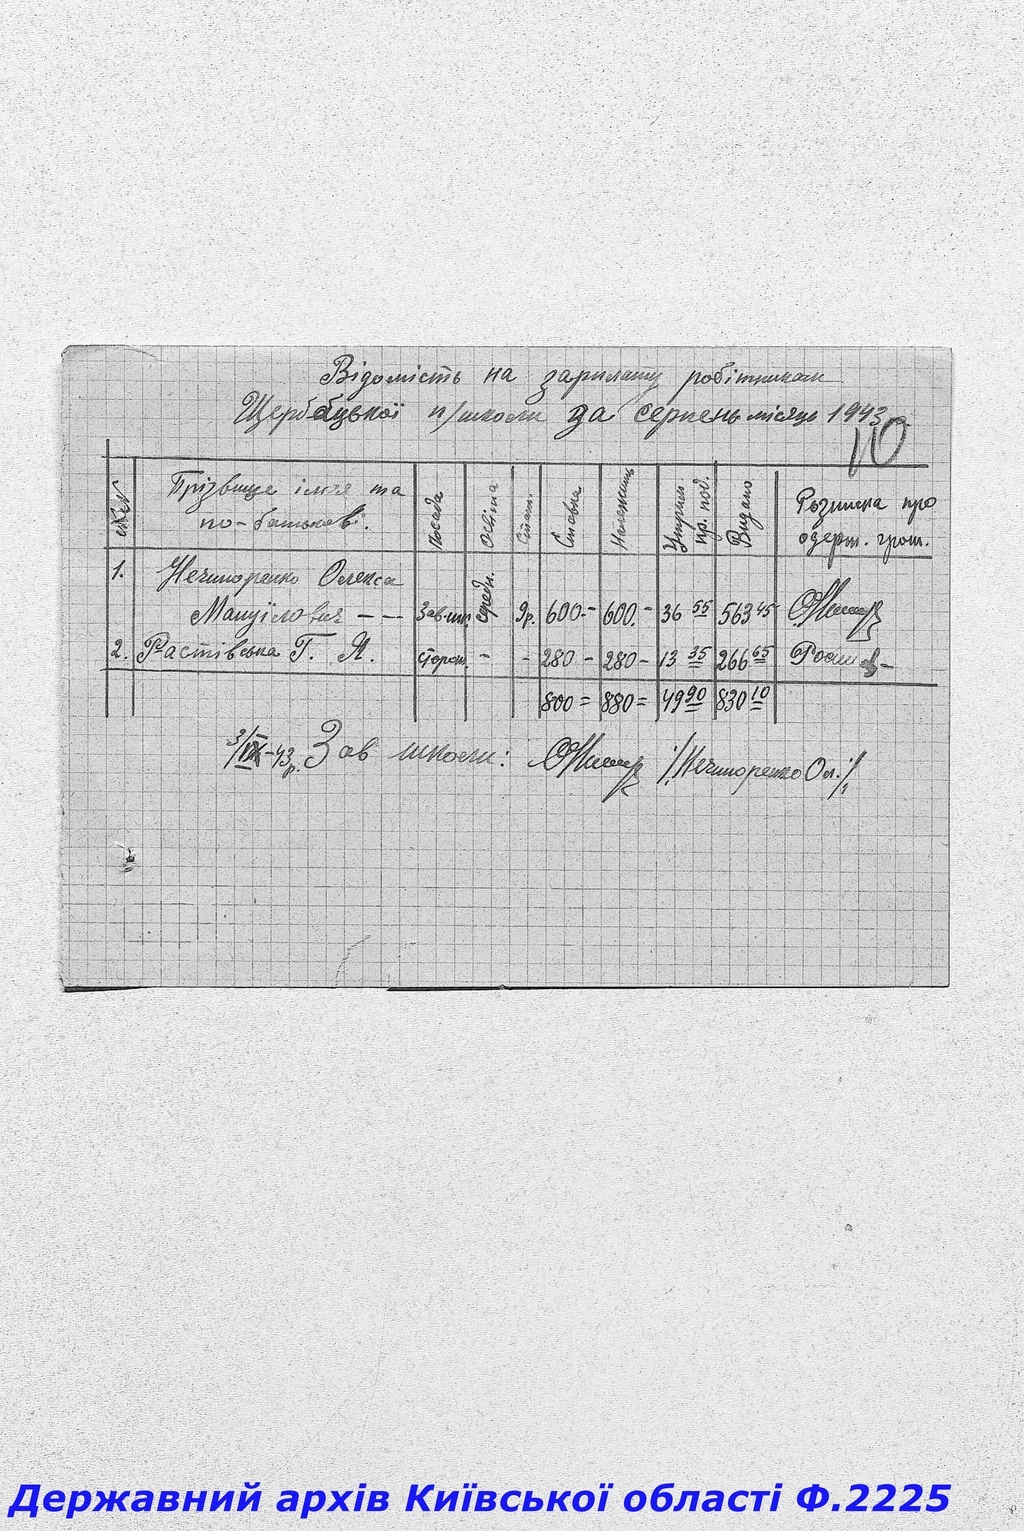 Відомість на зарплату робітникам
Щербацької п/школи за серпень місяць 1943 р.
110
№№ Прізвище ім'я та по-батькові. Посада Освіта Стаж. Ставка Належить Утрим. пр. под. Видано Розписка про одерж. грош.
1. Нечипоренко Олекса
Мануїлович - - - Зав. шк. середн. 9р. 600- 600.- 36 55 563 45
2. Растівська Г. Я. сторож. - - 280 - 280 - 13 35 266 65
800 = 880 = 49 90 830 10
3/IX-43р. Зав школи: /Нечипоренко Ол./
Державний архів Київської області Ф.2225